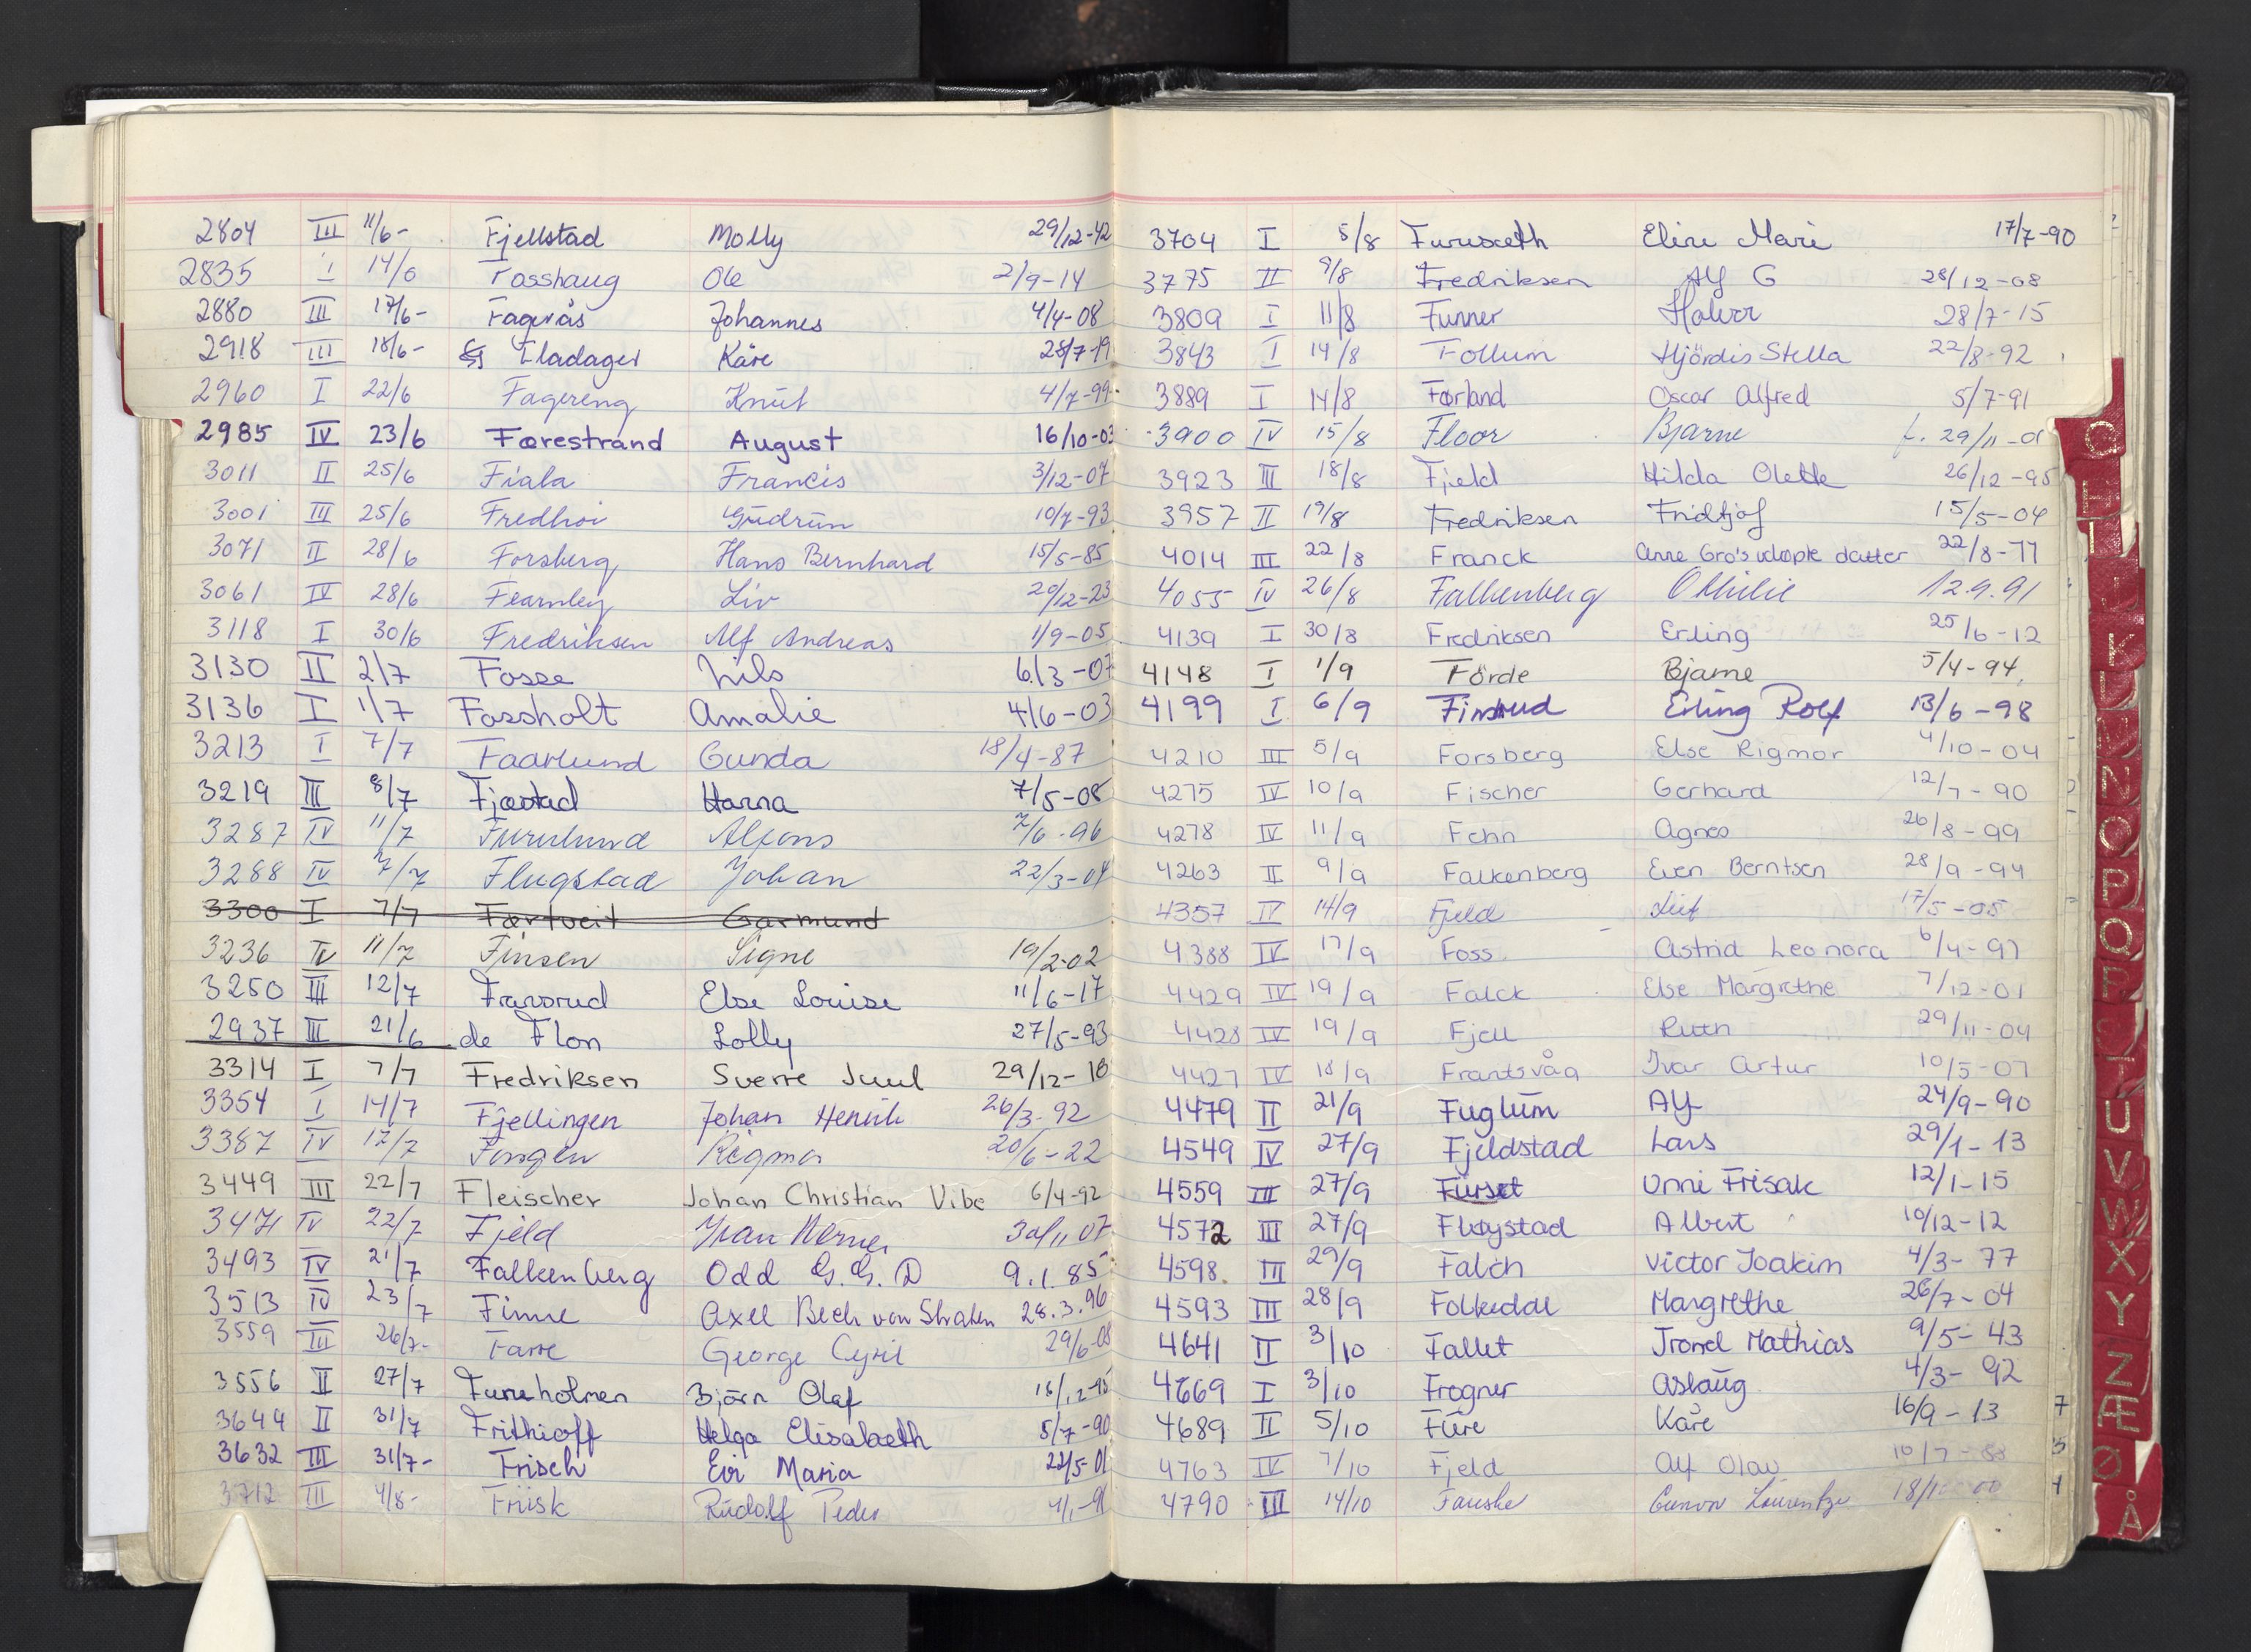 2804 III 11/6- Fjellstad Molly 29/12-42
2835 I 14/6 Fosshaug Ole 2/9-14
2880 III 17/6- Fagerås Johannes 4/4-08
2918 III 18/6- Fladager Kåre 28/7-19
2960 I 22/6 Fagereng Knut 4/7-99
2985 IV 23/6 Førestrand August 16/10-03
3011 II 25/6 Fiala Francis 3/12-07
3001 III 25/6 Fredhoi Gudrun 10/7-93
3071 II 28/6 Forsberg Hans Bernhard 15/5-85
3061 IV 28/6 Fearnley Liv 20/12-23
3118 I 30/6 Fredriksen Alf Andreas 1/9-05
3130 II 2/7 Fosse Nils 6/3-07
3136 I 1/7 Fossholt Amalie 4/6-03
3213 I 7/7 Faarlund Gunda 18/4-87
3219 III 8/7 Fjæstad Hanna 7/5-08
3287 IV 11/7 Furulund Alfons 7/6-96
3288 IV 7/7 Flugstad Johan 22/3-04
3300 I 7/7 Førtveit Garmund
3236 IV 11/7 Finsen Signe 19/2-02
3250 III 12/7 Fransrud Else Louise 11/6-17
2937 III 21/6 de Flon Lolly 27/5-93
3314 I 7/7 Fredriksen Sverre Juul 29/12-10
3354 I 14/7 Fjellingen Johan Henrik 26/3-92
3387 IV 17/7 Fongen Rigmor 20/6-22
3449 III 22/7 Fleischer Johan Christian Vibe 6/4-92
3471 IV 22/7 Fjeld Ivan Werner 30/11 07
3493 IV 21/7 Falkenberg Odd G. G. D 9.1.85
3513 IV 23/7 Finne Axel Bech von Straten 28.3.96
3559 III 26/7- Farre George Cyril 29/6-08
3556 II 27/7 Furuholmen Bjørn Olaf 15/12-95
3644 II 31/7 Frithioff Helga Elisabeth 5/7-90
3632 III 31/7- Frisch Evi Maria 22/5-01
3712 III 4/8- Friisk Rudolf Peder 4/1-91
3704 I 5/8 Furuseth Eline Marie 17/7-90
3775 II 9/8 Fredriksen Alf G 28/12-08
3809 I 11/8 Funner Halvor 28/7-15
3843 I 14/8 Follum Hjördis Stella 22/8-92
3889 I 14/8 Førland Oscar Alfred 5/7-91
3900 IV 15/8 Floor Bjarne f. 29/11-01
3923 III 18/8 Fjeld Hilda Olette 26/12-95
3957 II 19/8 Fredriksen Fridtjof 15/5-04
4014 III 22/8 Franck Anne Gro's udøpte datter 22/8-77
4055 IV 26/8 Falkenberg Othilie 12.9.91
4139 I 30/8 Fredriksen Erling 25/6-12
4148 I 1/9 Förde Bjarne 5/4-94
4199 I 6/9 Finsrud Erling Rolf 13/6-98
4210 III 5/9 Forsberg Else Rigmor 4/10-04
4275 IV 10/9 Fischer Gerhard 12/7-90
4278 IV 11/9 Fehn Agnes 26/8-99
4263 II 9/9 Falkenberg Even Berntsen 28/9-94
4357 IV 14/9 Fjeld Leif 17/5-05
4388 IV 17/9 Foss Astrid Leonora 6/4-97
4429 IV 19/9 Falck Else Margrethe 7/12-01
4428 IV 19/9 Fjell Ruth 29/11-04
4427 IV 18/9 Frantsvåg Ivar Artur 10/5-07
4479 II 21/9 Fuglum Alf 24/9-90
4549 IV 27/9 Fjeldstad Lars 29/1-13
4559 III 27/9 Furset Unni Frisak 12/1-15
4572 III 27/9 Fløystad Albert 10/12-12
4598 III 29/9 Falch Victor Joakim 4/3-77
4593 III 28/9 Folkedal Margrethe 26/7-04
4641 II 3/10 Fallet Trond Mathias 9/5-43
4669 I 3/10 Frogner Aslaug 4/3-92
4689 II 5/10 Fure Kåre 16/9-13
4763 IV 7/10 Fjeld Alf Olav 10/7-88
4790 III 14/10 Fauske Gunvor
G
H
I
J
K
L
M
N
O
P
Q
R
S
T
U
V
W
X
Y
Z
Æ
Ø
Å